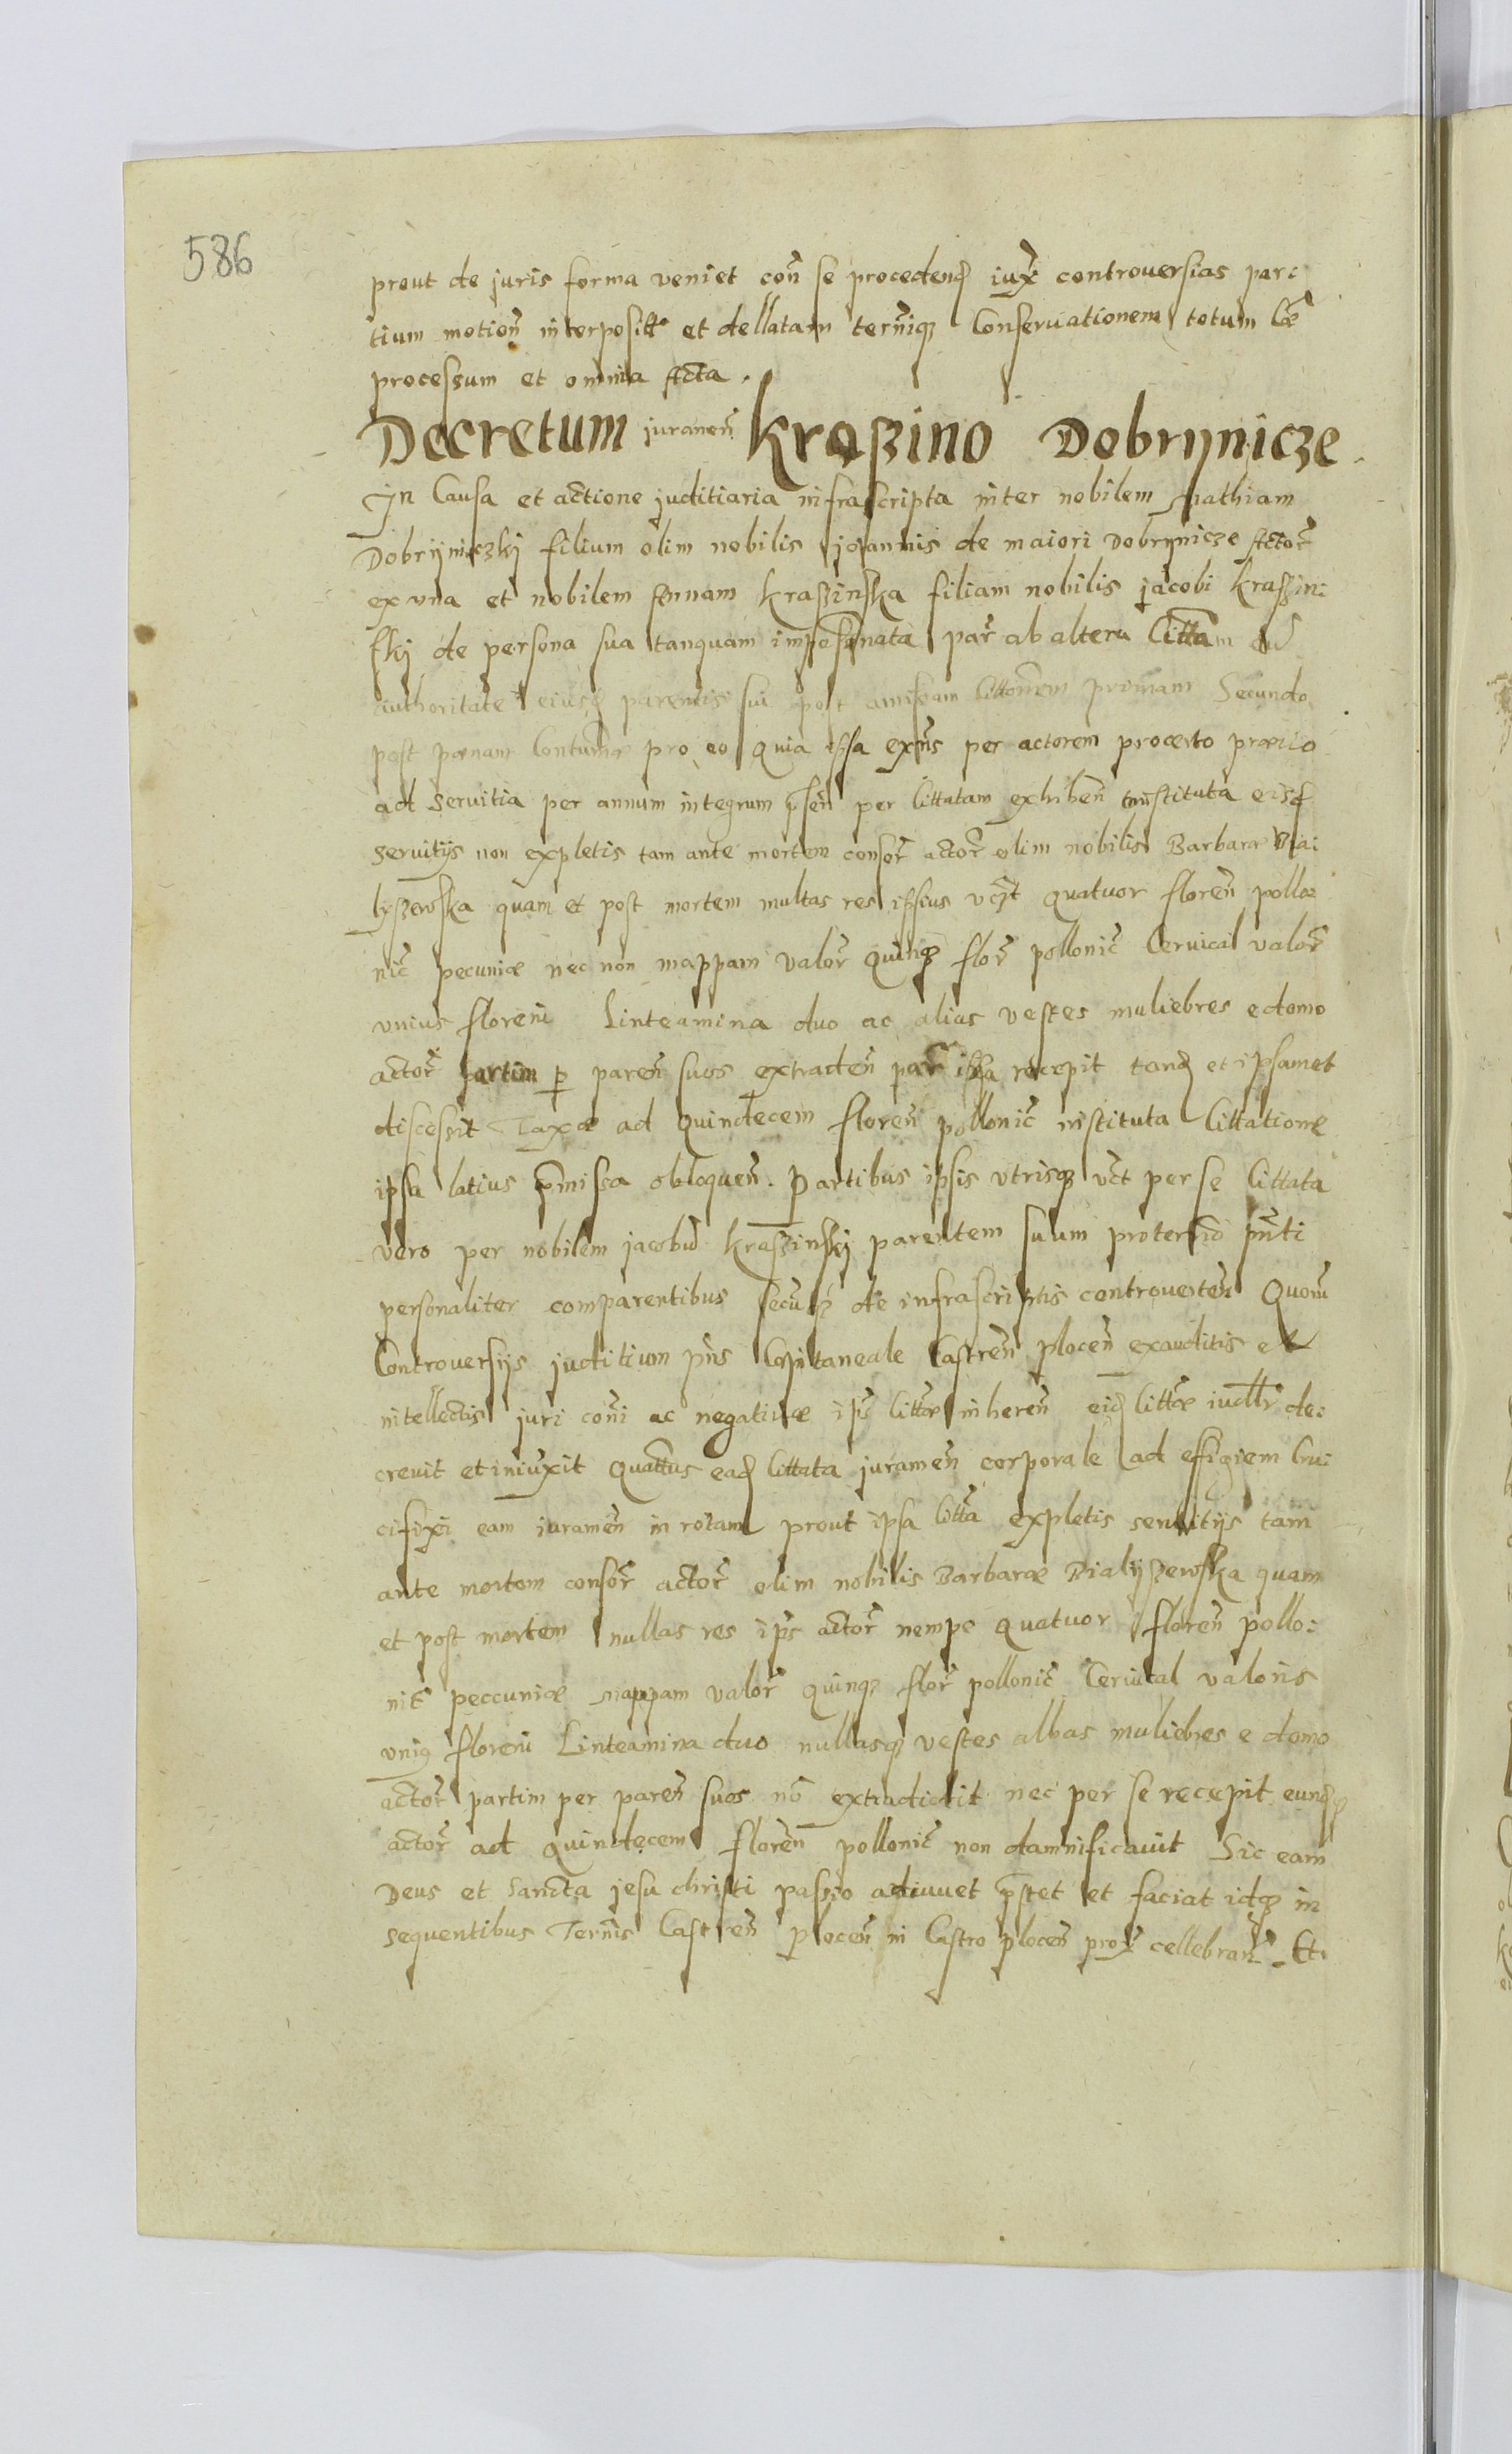 586
prout de juris forma veniet coñ se procedend iux controuersias par:
tium motioñ interposit et dellatam terñiq Conseruationem totum
processum et omnia Acta.
Decretum jurameñ Kraszino Dobrynicze.
In Causa et actione juditiaria infrascripta inter nobilem Mathiam
Dobrynieczkj filium olim nobilis joannis de maiori Dobrynicze Actor
ex vna et nobilem Annam Kraszinska filiam nobilis jacobi Kraszin:
skj de persona sua tanquam impossesionata par ab altera Cittatam
authoritate eiusd parentis sui post amissam littonem primam Secundo
post pœnam Contumæ pro eo quia ipsa exñs per actorem pro certo prætio
ad seruitia per annum integrum p̃señ per Cittatam exhibeñ constituta eisd
seruitijs non expletis tam ante mortem consor actor olim nobilis Barbaræ Bia:
lyszewska quam et post mortem multas res ipsius vczt quatuor floreñ pollo:
nic pecuniæ nec non mappam valor quinq flor pollonic Ceruical valor
vnius floreni Linteamina duo ac alias vestes muliebres e domo
actor partim p pareñ suos extradeñ par ipsa recepit tand et ipsamet
discessit Taxæ ad quindecem floreñ pollonic instituta Cittatione
ipsa latius p̃missa obloqueñ. Partibus ipsis vtrisq vct per se Cittata
vero per nobilem jacobũ Kraszinskj parentem suum pro termĩo pñti
personaliter comparentibus secum de infrascriptis controuerteñ Quorũ
Controuersijs juditium pñs Capitaneale Castreñ ploceñ exauditis et
intellectis juri coñi ac negatiuæ ips Cittæ inhereñ eid Cittæ iudlr de:
creuit et iniuxit Quattus ead Cittata jurameñ corporale ad effigiem Cru:
cifixi eam jurameñ in rotam prout ipsa Citta expletis seruitijs tam
ante mortem consor actor olim nobilis Barbaræ Bialyszewska quam
et post mortem nullas res ips actor nempe quatuor floreñ pollo:
nic peccuniæ mappam valor quinq flor pollonic Ceruical valoris
vniq floreni Linteamina duo nullasq vestes albas muliebres e domo
actor partim per pareñ suos nõ extradidit nec per se recepit eund
actor ad quindecem floreñ pollonic non damnificauit Sic eam
Deus et Sancta jesu christi passio adiuuet p̃stet et faciat idq in
sequentibus Terñis Castreñ ploceñ in Castro ploceñ prox cellebrañ. Et